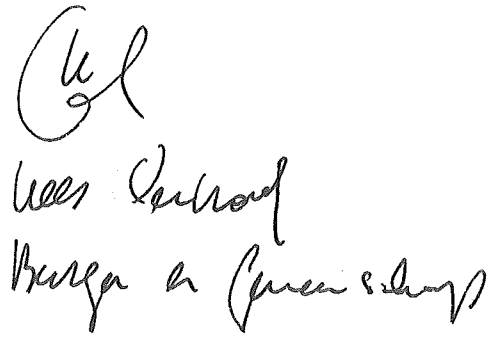 Kees Verhoef
Burger en Gemeenschap